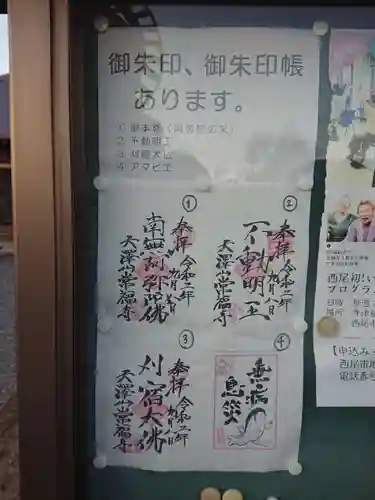 御朱印、御朱印帳
あります。
① 御本尊(阿弥陀如来)
② 不動明王
③ 刈宿大仏
④ アマビエ
①
奉拝 令和二年九月八日
南無阿弥陀佛
天澤山常福寺
②
奉拝 令和二年九月八日
不動明王
天澤山常福寺
③
奉拝 令和二年九月八日
刈宿大佛
天澤山常福寺
④
無病
息災
西尾
プログラ
日時
場所
【申込み
西尾市
電話番号